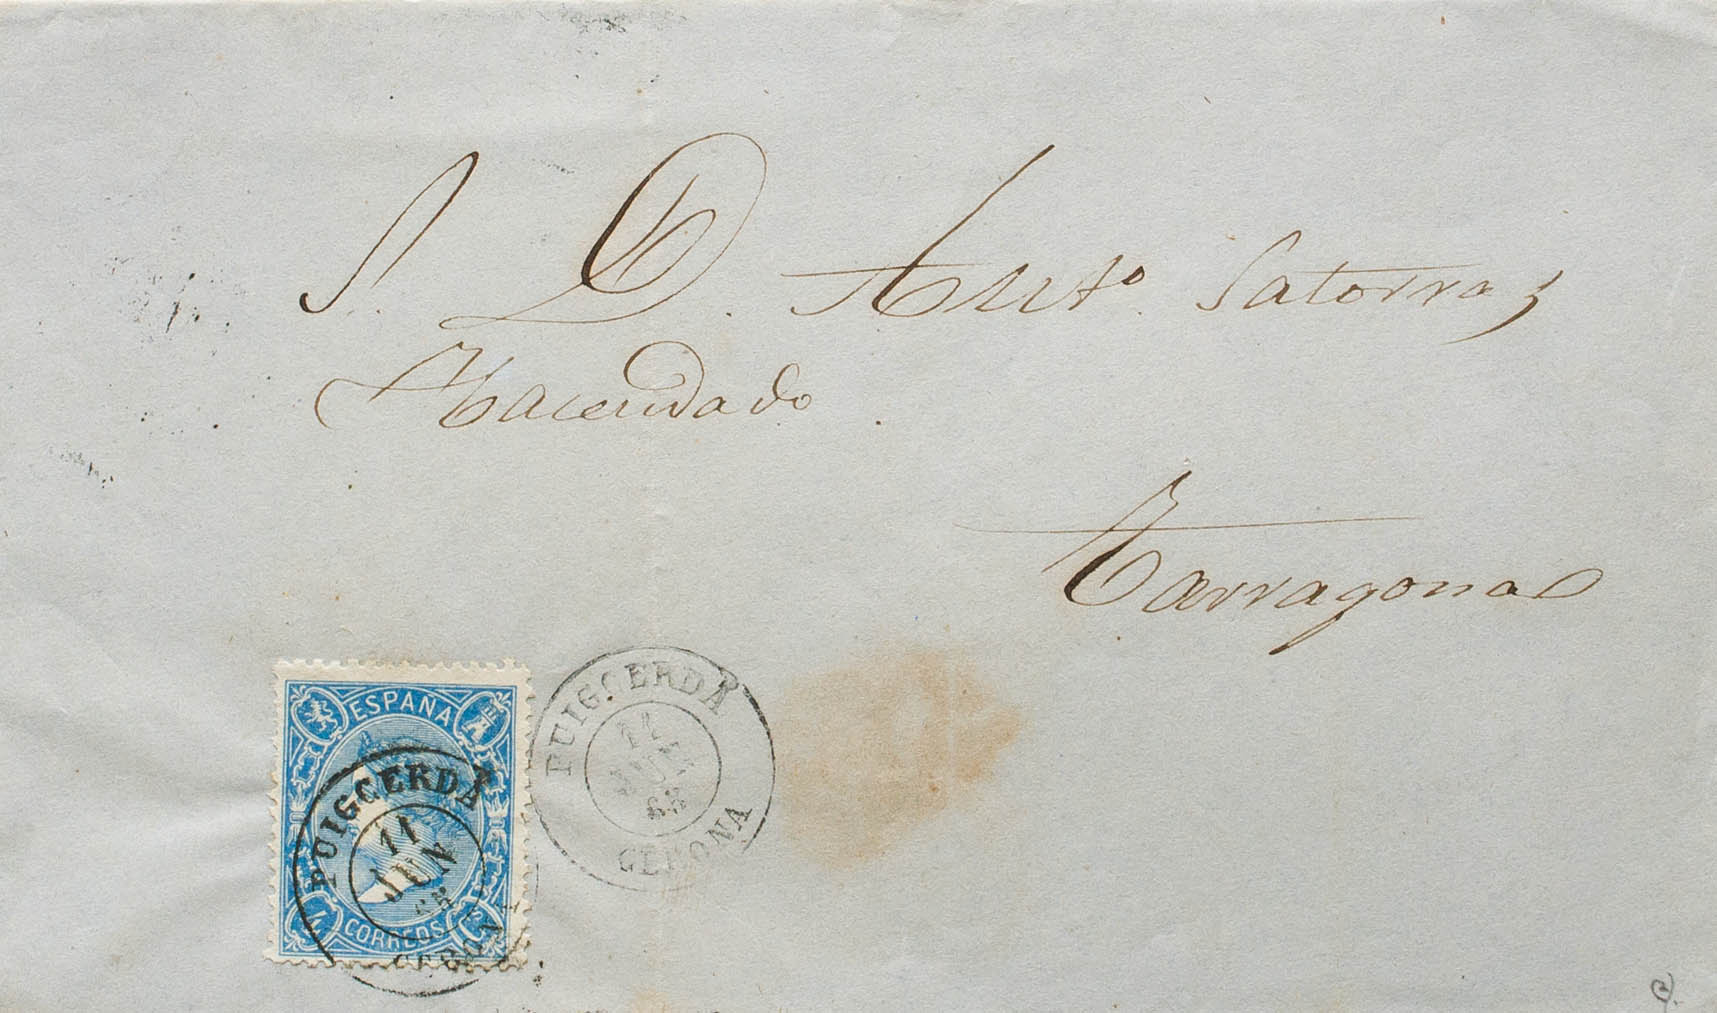 S. D. Antº Satorras
Hacendado.
Tarragona
ESPAÑA
CORREOS
PUIGCERDÁ
11
JUN
GERONA
PUIGCERDÁ
11
JUN
GERONA